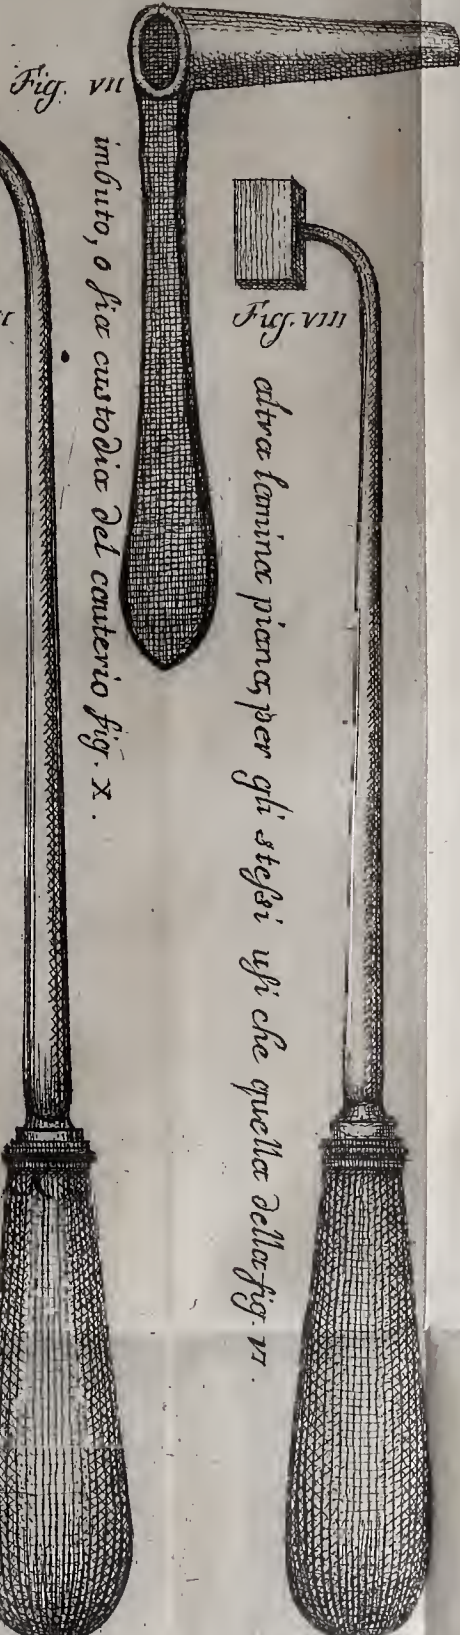 Fig. VII
imbuto, o ſia custodia del cauterio fig. X.
Fig. VIII
altra lamina piana, per gli steſsi uſi che quella della fig. VI.